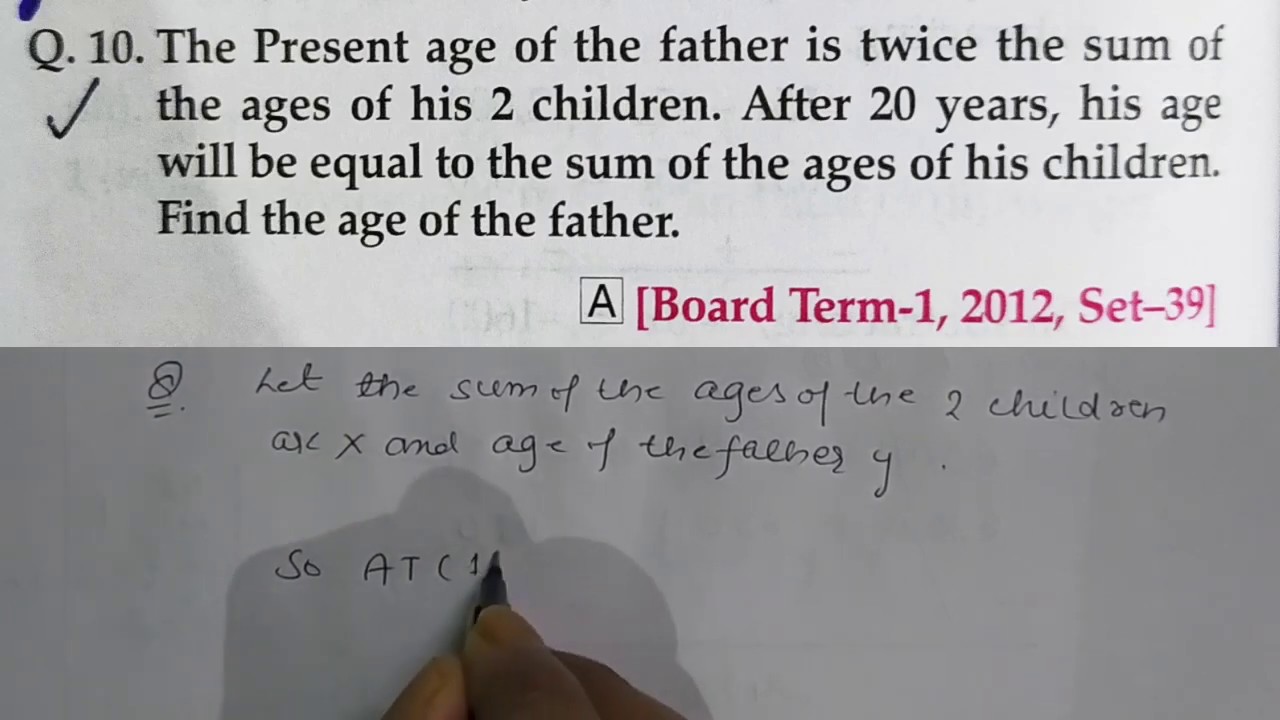 Q. 10. The Present age of the father is twice the sum of
the ages of his 2 children. After 20 years, his age
will be equal to the sum of the ages of his children.
Find the age of the father.
A [Board Term-1, 2012, Set–39]
Q. Let the sum of the ages of the 2 children
are x and age of the father y .
So ATC 1